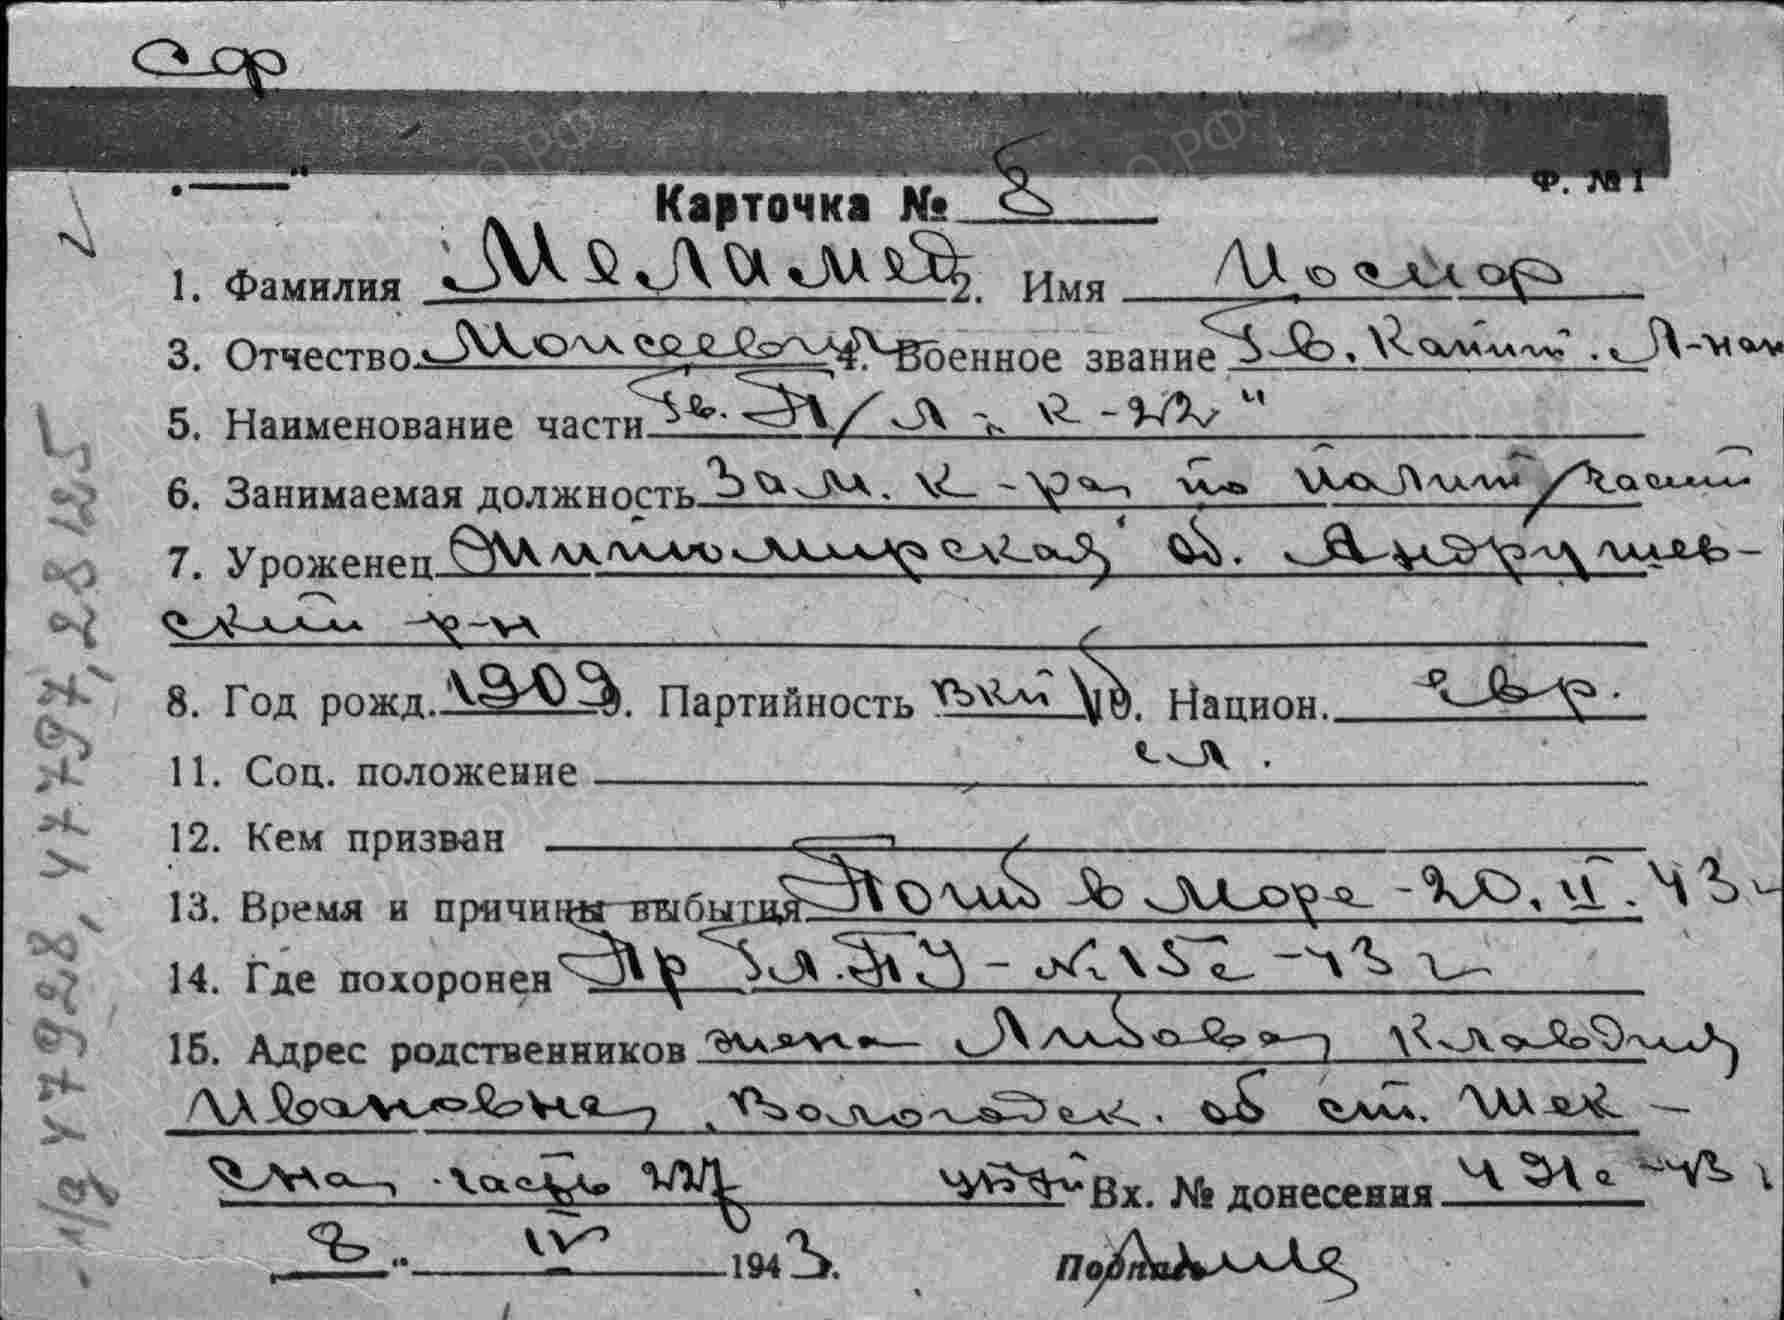 Сор
Ф. №1
Карточка № 8
1. Фамилия Меламед 2. Имя Иосиф
3. Отчество Моисеевич 4. Военное звание Гв. Капит. Л-нт
5. Наименование части Гв. П/Л "К-22"
6. Занимаемая должность Зам. к-ра по полит/части
7. Уроженец Житомирская об. Андрушев-
ский р-н
8. Год рожд. 1909 9. Партийность вкпб 10. Национ. евр.
11. Соц. положение сл.
12. Кем призван
13. Время и причины выбытия Погиб в море - 20.II.43 г
14. Где похоронен Пр ГЛ.ПУ - 43 г
15. Адрес родственников жена Клавдия
Ивановна, Вологодск. об ст. Шек-
сна, часть Вх. № донесения 431с - 43 г
2 IV 1943.
Подпись
ЦАМО.РФ